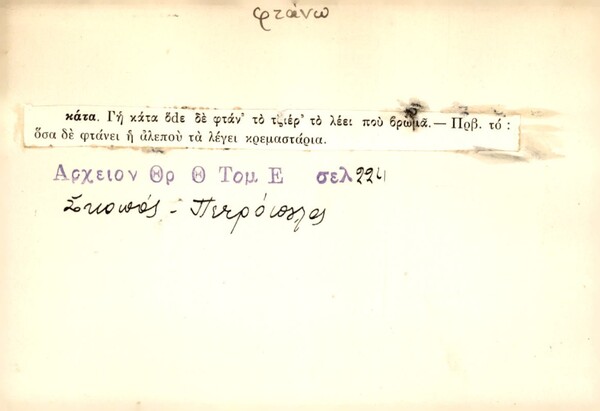 φτάνω
κάτα. Γἡ κάτα ὅde δὲ φτάν' τὸ τζιέρ' τὸ λέει ποὺ βρωμᾶ.— Πρβ. τό :
ὅσα δὲ φτάνει ἡ ἀλεποὺ τὰ λέγει κρεμαστάρια.
Αρχειον Θρ Θ Τομ Ε σελ 224
Σκοπός - Πετρόπολος